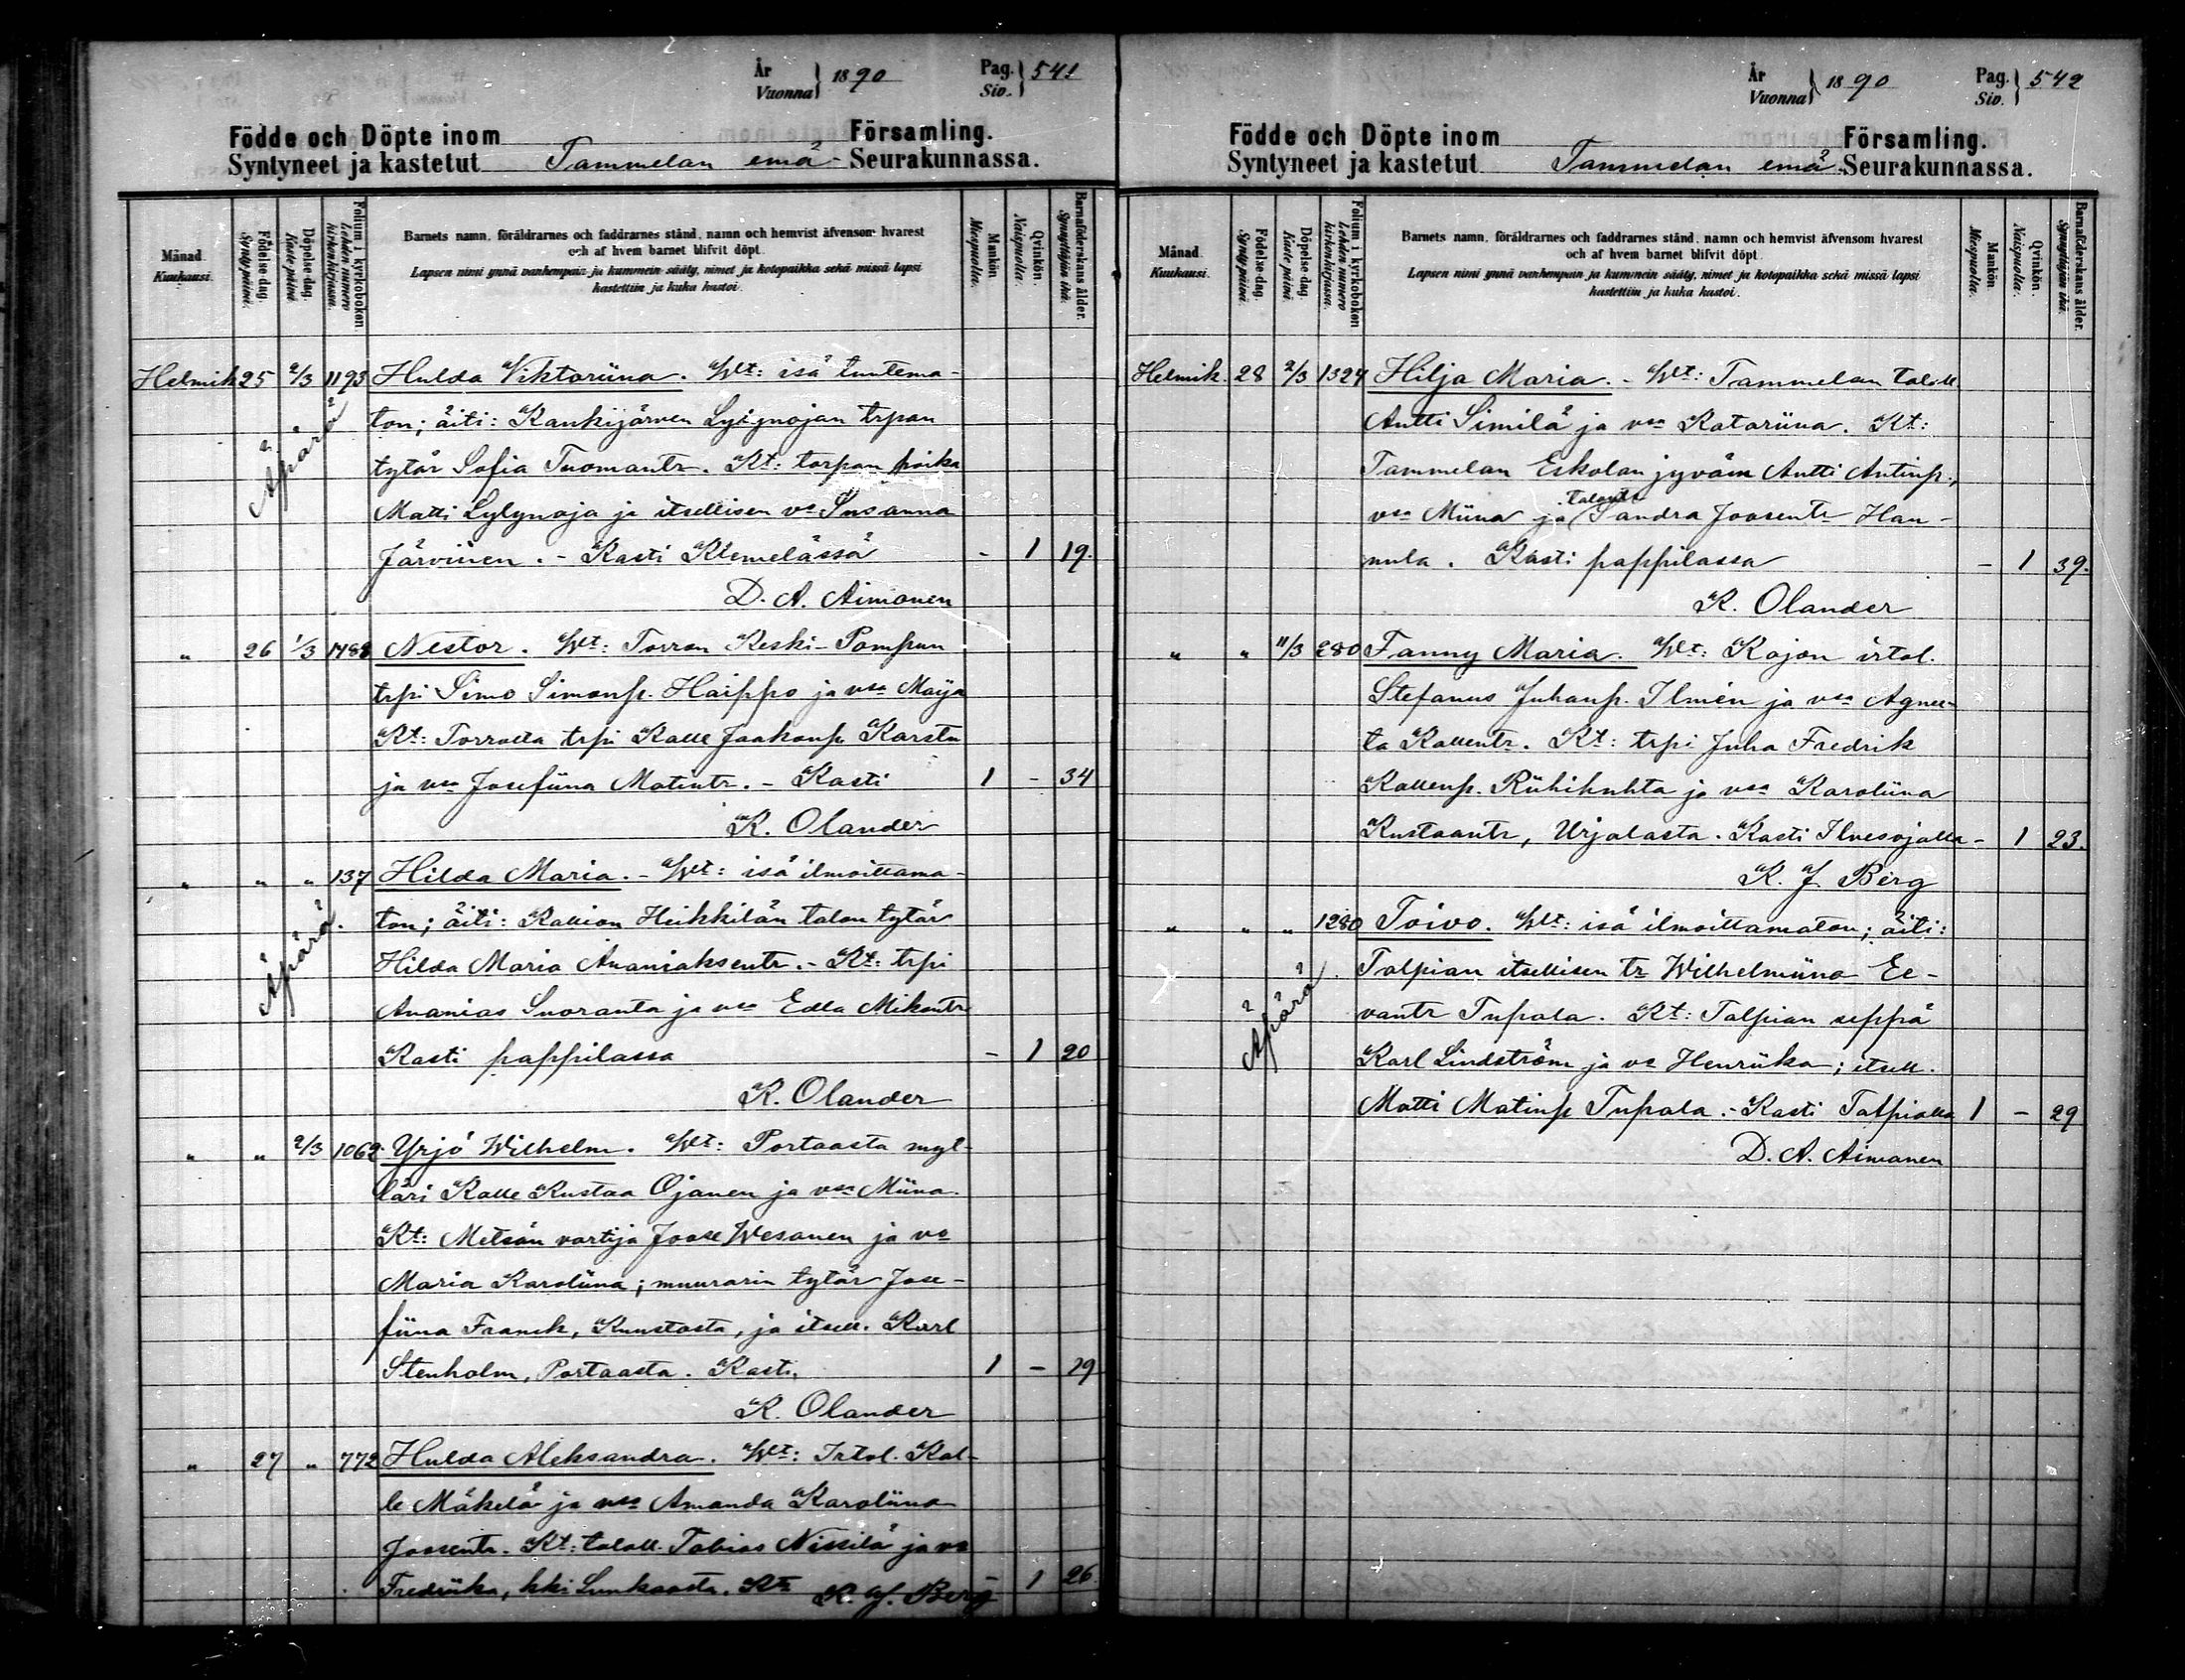 År
Vuonna } 1890
Pag.
Siv. } 541
Födde och Döpte inom
Syntyneet ja kastetut Tammelan emä- Församling.
Seurakunnassa.
Månad.
Kuukausi.
Födelse-dag.
Syntypäivä.
Döpelse-dag.
Kastepäivä.
Folium i kyrkoboken
Lehden numero
kirkonkirjassa.
Barnets namn, föräldrarnes och faddrarnes stånd, namn och hemvist äfvensom hvarest
och af hvem barnet blifvit döpt.
Lapsen nimi ynnä vanhempain ja kummein sääty, nimet ja kotopaikka sekä missä lapsi
kastettiin ja kuka kastoi.
Mankön.
Miespuolia.
Qvinkön.
Naispuolia.
Barnaföderskans ålder.
Synnyttäjän ikä.
Helmik 25 2/3 1193 Hulda Viktoriina. Wt: isä tuntema-
ton; äiti: Kaukijärven Lylynojan trpan
Äpärä
tytär Sofia Tuomantr. Kt: torpan poika
Matti Lylynoja ja itsellisen vo Susanna
Järvinen. - Kasti Klemelässä - 1 19.
D. A. Aimonen
" 26 1/3 1488 Nestor. Wt: Torron Keski-Pompun
trpi Simo Simonp. Haippo ja vsa Maija
Kt: Torrolta trpi Kalle Jaakonp. Karstu
ja vsa Josefiina Matintr. - Kasti 1 - 34
K. Olander
" " " 137 Hilda Maria. - Wt: isä ilmoittama-
ton; äiti: Kallion Heikkilän talon tytär
Äpärä.
Hilda Maria Ananiaksentr. - Kt: trpi
Ananias Suoranta ja vsa Edla Mikontr.
Kasti pappilassa - 1 20
K. Olander
" " 2/3 1062 Yrjö Wilhelm. Wt: Portaasta myl-
läri Kalle Kustaa Ojanen ja vsa Miina.
Kt: Metsän vartija Joose Wesanen ja vo
Maria Karoliina; muurarin tytär Jose-
fiina Franck, Kuustosta, ja itsell. Karl
Stenholm, Portaasta. Kasti 1 - 29
K. Olander
" 27 " 772 Hulda Aleksandra. Wt: Irtol. Kal-
le Mäkelä ja vsa Amanda Karoliina
Joosentr. Kt: taloll. Tobias Nissilä ja vo
Fredriika, kki Lunkaasta. Kti K. J. Berg - 1 26
År
Vuonna } 1890
Pag.
Siv. } 542
Födde och Döpte inom
Syntyneet ja kastetut Tammelan emä- Församling.
Seurakunnassa.
Månad.
Kuukausi.
Födelse-dag.
Syntypäivä.
Döpelse-dag.
Kastepäivä.
Folium i kyrkoboken
Lehden numero
kirkonkirjassa.
Barnets namn, föräldrarnes och faddrarnes stånd, namn och hemvist äfvensom hvarest
och af hvem barnet blifvit döpt.
Lapsen nimi ynnä vanhempain ja kummein sääty, nimet ja kotopaikka sekä missä lapsi
kastettiin ja kuka kastoi.
Mankön.
Miespuolia.
Qvinkön.
Naispuolia.
Barnaföderskans ålder.
Synnyttäjän ikä.
Helmik. 28 2/3 1324 Hilja Maria. - Wt: Tammelan taloll
Antti Similä ja vsa Katariina. Kt:
Tammelan Eskolan jyväm Antti Antinp.,
vsa Miina ja Sandra Joosentr Han-
nula. Kasti pappilassa - 1 39.
K. Olander
" " 11/3 280 Fanny Maria. Wt: Kojon irtol.
Stefanus Juhanp. Ilmén ja vsa Agnee-
ta Kallentr. Kt: trpi Juha Fredrik
Kallenp. Riihihuhta ja vsa Karoliina
Kustaantr, Urjalasta. Kasti Ilvesojalla - 1 23.
K. J. Berg
" " " 1280 Toivo. Wt: isä ilmoittamaton; äiti:
Talpian itsellisen tr Wilhelmiina Ee-
Äpärä
vantr Tupala. Kt: Talpian seppä
Karl Lindström ja vo Henriika; itsell.
Matti Matinp Tupala. - Kasti Talpialla 1 - 29
D. A. Aimonen